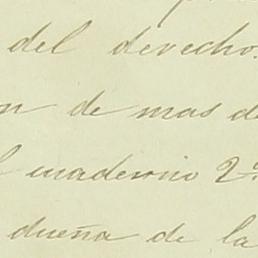 del derecho.
n de mas de
l cuaderno 2º
dueña de la